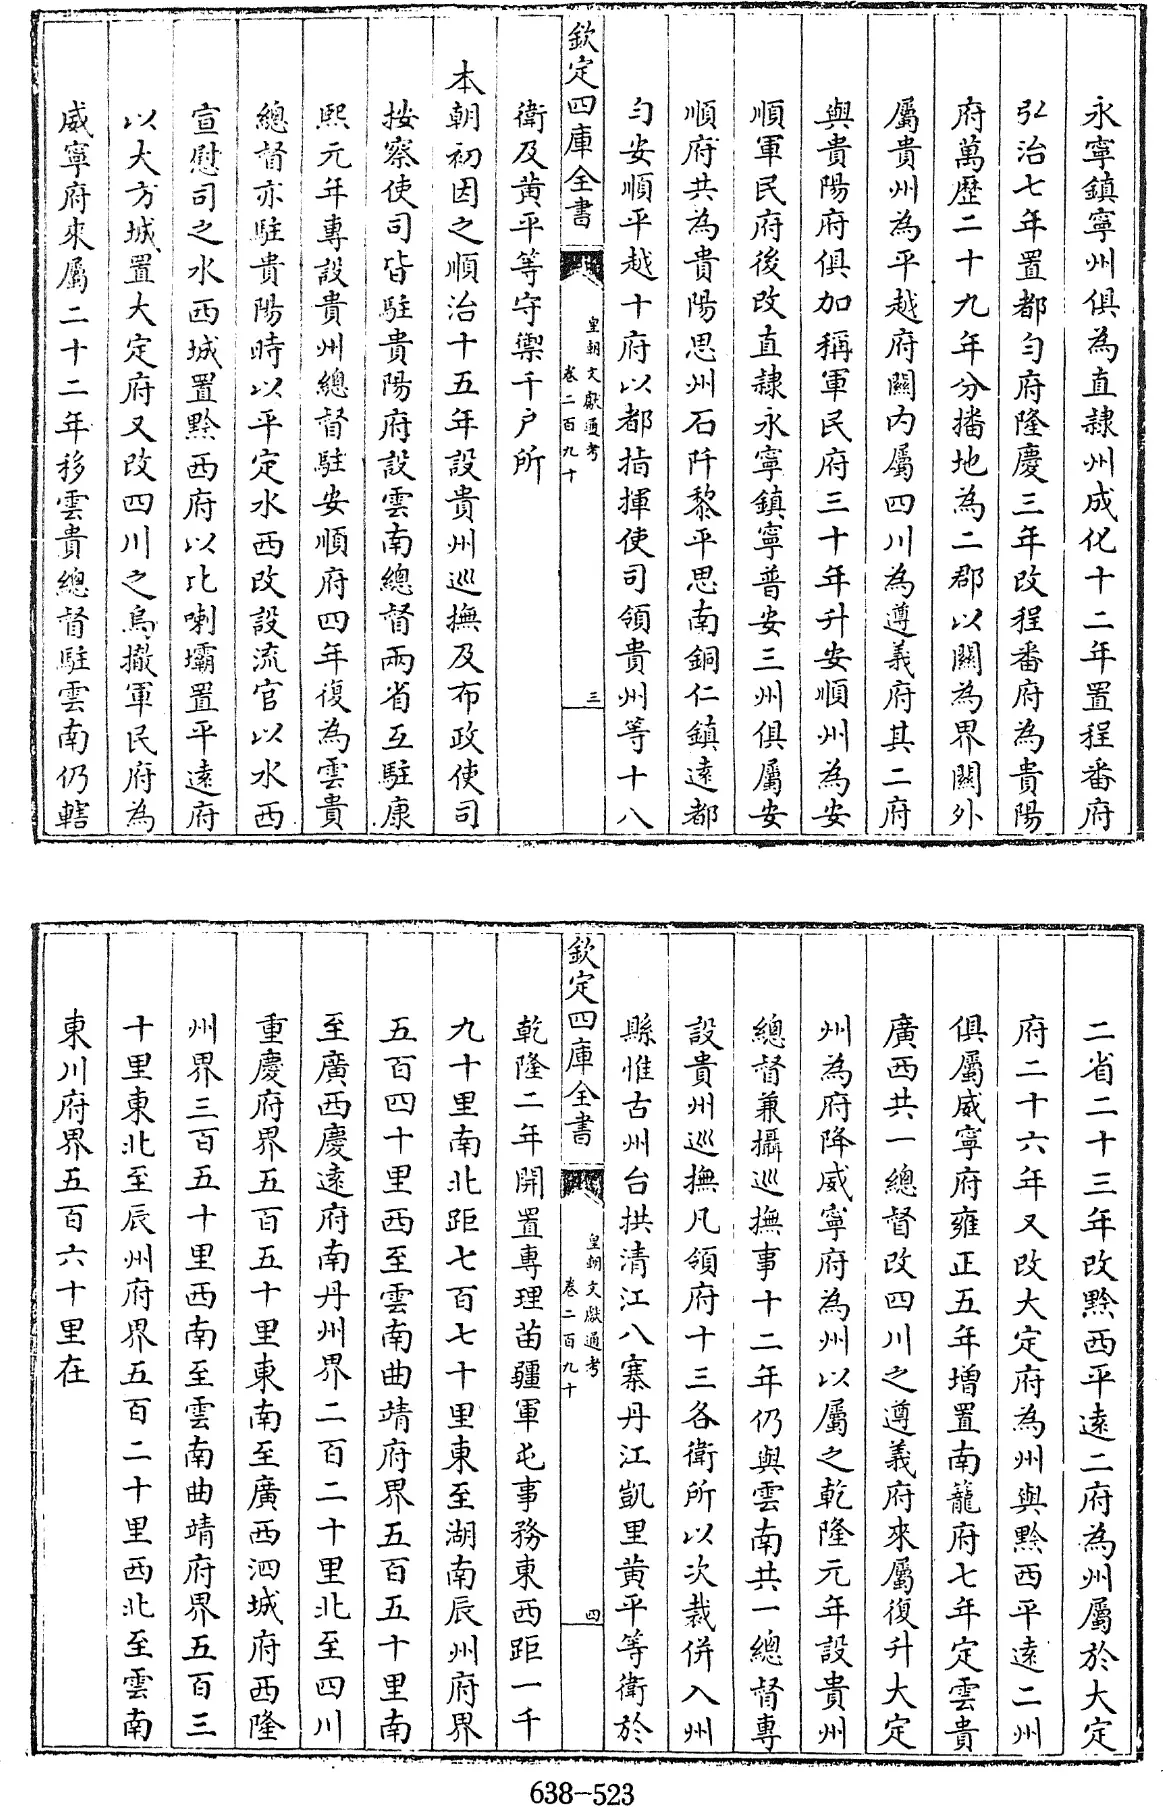 永寧鎮寧州俱為直隸州成化十二年置程番府
弘治七年置都勻府隆慶三年改程番府為貴陽
府萬歴二十九年分播地為二郡以關為界關外
屬貴州為平越府關内屬四川為遵義府其二府
與貴陽府俱加稱軍民府三十年升安順州為安
順軍民府後改直隸永寧鎮寧普安三州俱屬安
順府共為貴陽思州石阡黎平思南銅仁鎮遠都
勻安順平越十府以都指揮使司領貴州等十八
欽定四庫全書
皇朝文獻通考
卷二百九十
三
衛及黄平等守禦千户所
本朝初因之順治十五年設貴州巡撫及布政使司
按察使司皆駐貴陽府設雲南總督兩省互駐康
熙元年專設貴州總督駐安順府四年復為雲貴
總督亦駐貴陽時以平定水西改設流官以水西
宣慰司之水西城置黔西府以比喇壩置平遠府
以大方城置大定府又改四川之烏撤軍民府為
威寧府來屬二十二年移雲貴總督駐雲南仍轄
二省二十三年改黔西平遠二府為州屬於大定
府二十六年又改大定府為州與黔西平遠二州
俱屬威寧府雍正五年增置南籠府七年定雲貴
廣西共一總督改四川之遵義府來屬復升大定
州為府降威寧府為州以屬之乾隆元年設貴州
總督兼攝巡撫事十二年仍與雲南共一總督專
設貴州巡撫凡領府十三各衛所以次裁併入州
縣惟古州台拱清江八寨丹江凱里黄平等衛於
欽定四庫全書
皇朝文獻通考
卷二百九十
四
乾隆二年開置專理苗疆軍屯事務東西距一千
九十里南北距七百七十里東至湖南辰州府界
五百四十里西至雲南曲靖府界五百五十里南
至廣西慶遠府南丹州界二百二十里北至四川
重慶府界五百五十里東南至廣西泗城府西隆
州界三百五十里西南至雲南曲靖府界五百三
十里東北至辰州府界五百二十里西北至雲南
東川府界五百六十里在
638-523